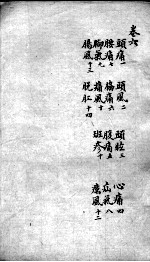 卷六
頭痛一 頭風二 頭眩三 心痛四
腰痛七 脇痛六 腹痛五 疝氣八
脚氣九 痛風十
腸風十三 脱肛十四 斑疹十